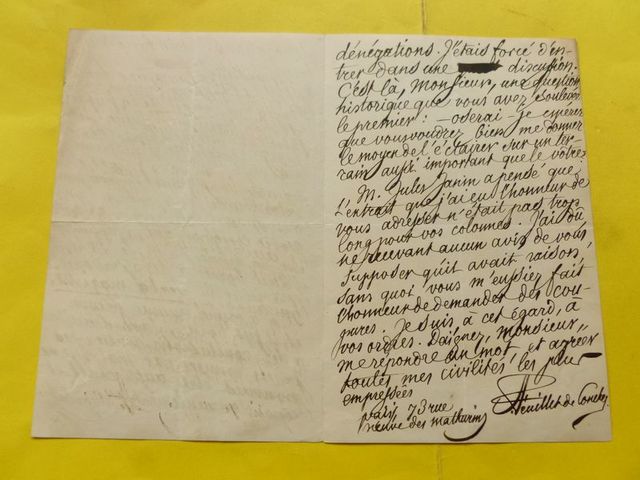 dénégations. J'étais forcé d'en-
trer dans une discussion.
C'est là, Monsieur, une question
historique que vous avez soulevée
le premier : — oserai-je espérer
que vous voudrez bien me donner
le moyen de l'éclairer sur un ter-
rain aussi important que le vôtre.
M. Jules Janin a pensé que
l'extrait que j'ai eu l'honneur de
vous adresser n'était pas trop
long pour vos colonnes. J'ai dû
ne recevant aucun avis de vous,
supposer qu'il avait raison,
sans quoi vous m'eussiez fait
l'honneur de demander des cou-
pures. Je suis à cet égard, à
vos ordres. Daignez, Monsieur,
me répondre un mot et agréer
toutes mes civilités les plus
empressées
Feuillet de Conches
Paris 73 rue
neuve des mathurins